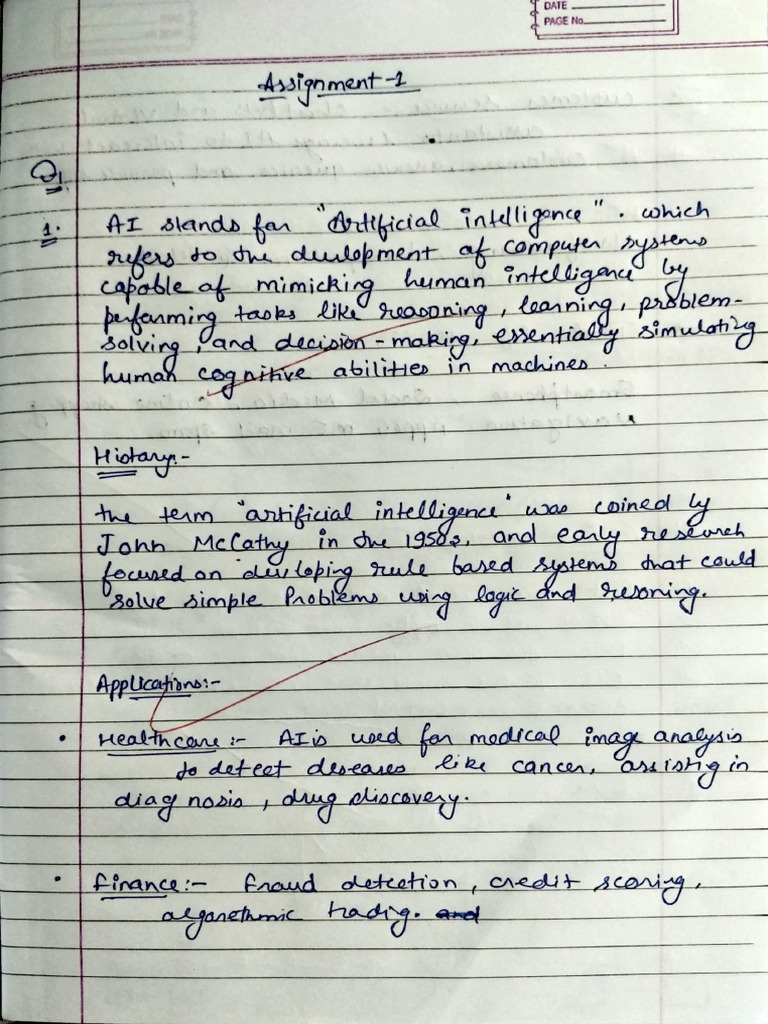 DATE
PAGE No.
Assignment-1
Q1
1. AI stands for "Artificial intelligence". which
refers to the development of computer systems
capable of mimicking human intelligence by
performing tasks like reasoning, learning, problem-
solving, and decision-making, essentially simulating
human cognitive abilities in machines.
History:-
the term "artificial intelligence" was coined by
John McCathy in the 1950s, and early research
focused on developing rule based systems that could
solve simple Problems using logic and resoning.
Applications:-
• Healthcare:- AI is used for medical image analysis
to detect deseases like cancer, assistig in
diagnosis, drug discovery.
• Finance:- Fraud detection, credit scoring,
algorethmic tradig. and